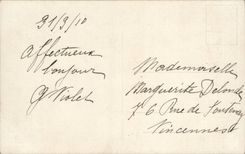 31/3/10
Affectueux
bonjour
G Violet
Mademoiselle
Marguerite
76 Rue de Fontenay
Vincennes